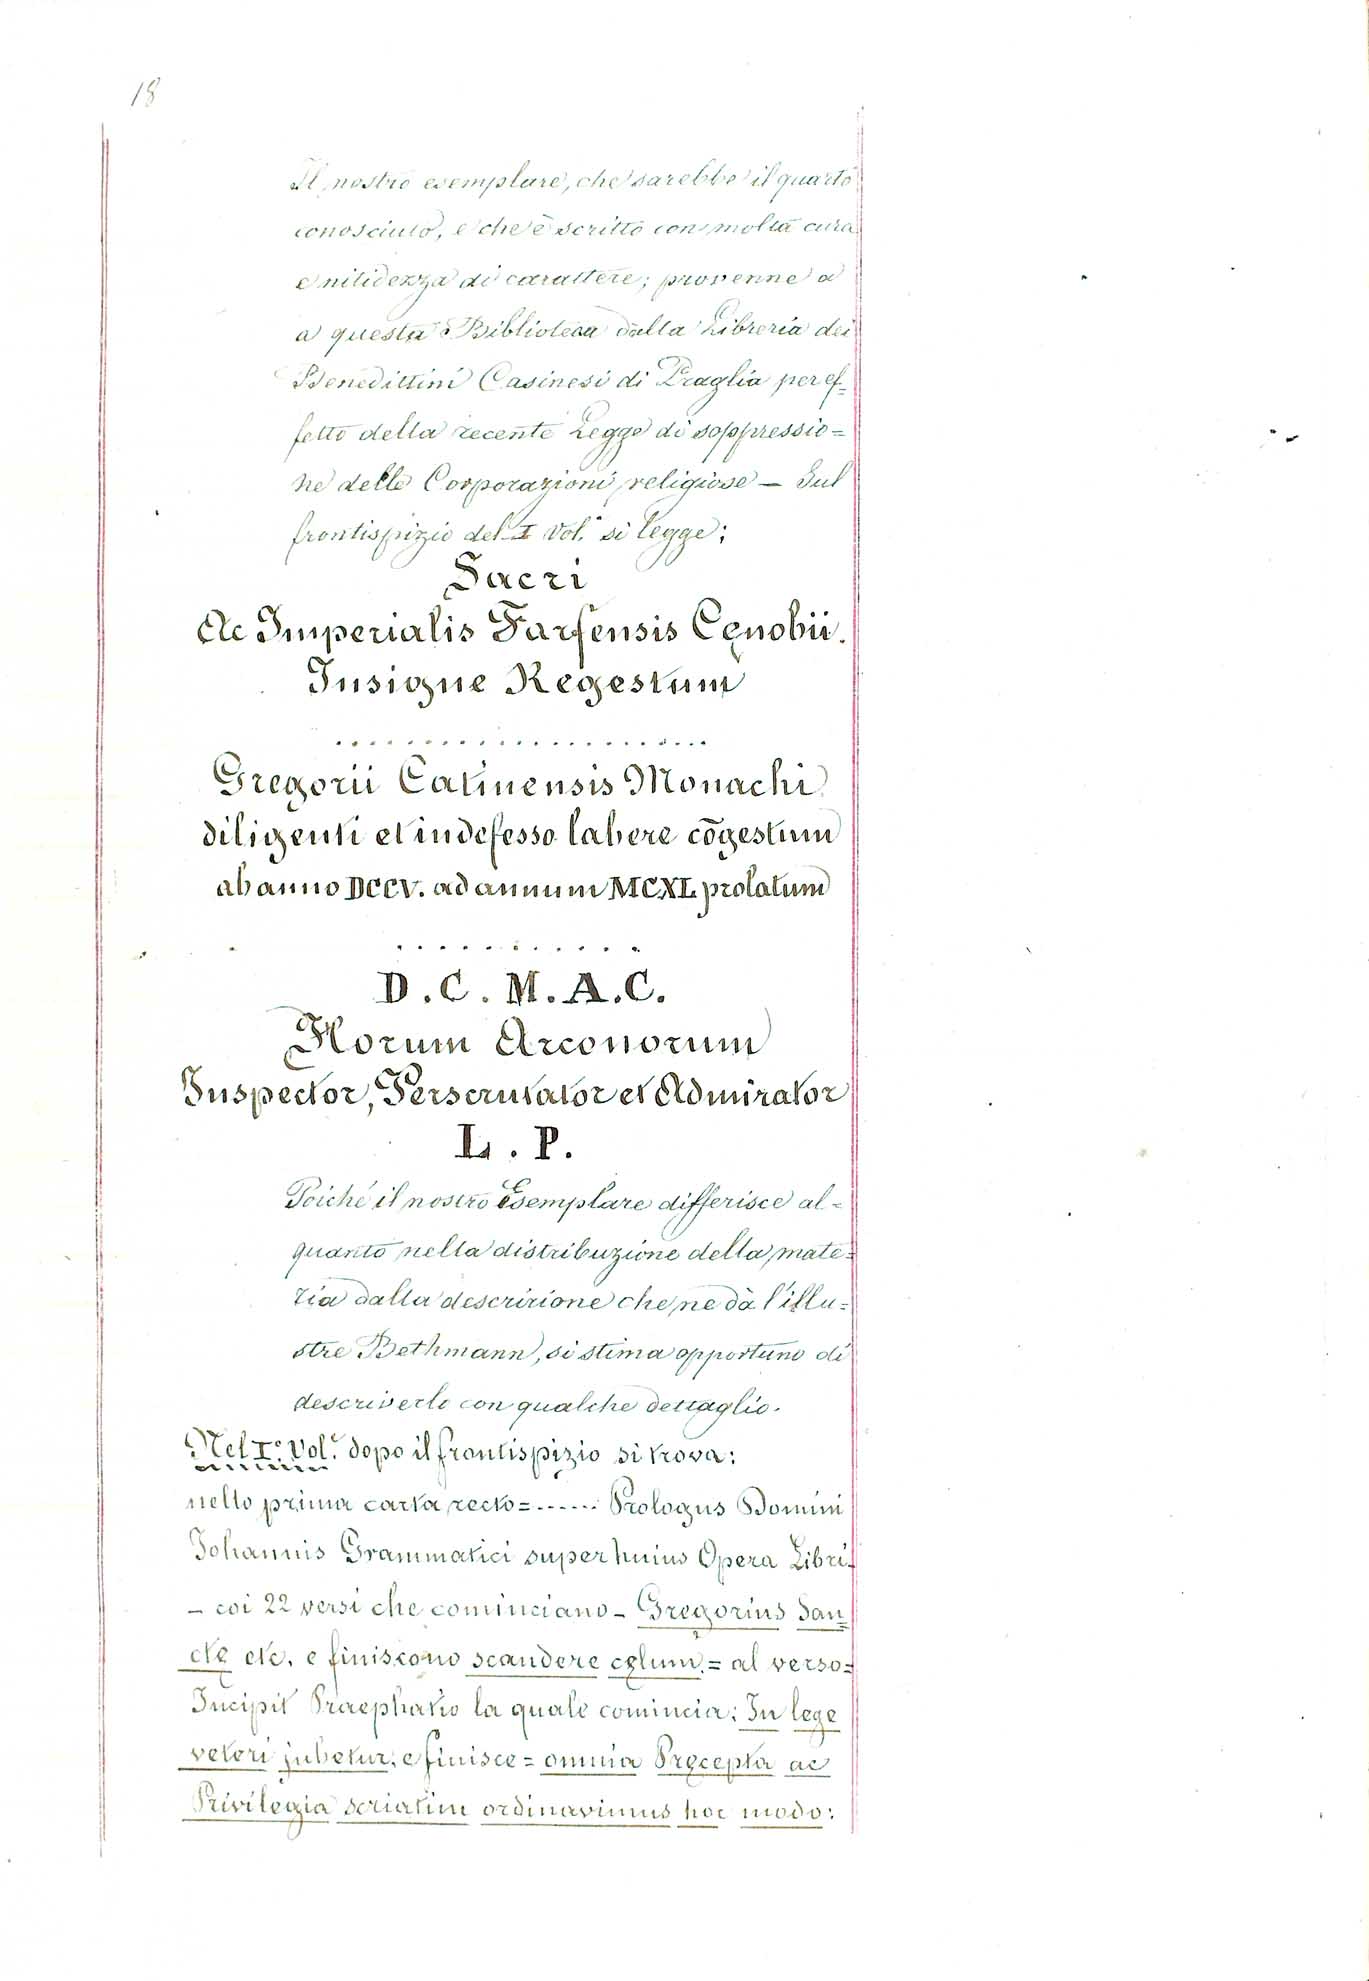 18
Il nostro esemplare, che sarebbe il quarto
conosciuto, e che è scritto con molta cura
e nitidezza di carattere; provenne a
a questa Biblioteca dalla Libreria dei
Benedittini Casinesi di Praglia per ef=
fetto della recente Legge di soppressio=
ne delle Corporazioni religiose — Sul
frontispizio del I Vol.e si legge:
Sacri
Ac Imperialis Farfensis Cęnobii.
Insigne Regestum
....................
Gregorii Catinensis Monachi
diligenti et indefesso labere cōgestum
ab anno DCCV. ad annum MCXL prolatum
............
D. C. M. A. C.
Horum Arconorum
Inspector, Perscrutator et Admirator
L. P.
Poiché il nostro Esemplare differisce al=
quanto nella distribuzione della mate=
ria dalla descrizione che ne dà l'illu=
stre Bethmann, si stima opportuno di
descriverlo con qualche dettaglio.
Nel I.º Vol.e dopo il frontispizio si trova:
nello prima carta recto=...... Prologus Domini
Johannis Grammatici super huius Opera Libri_
— coi 22 versi che cominciano — Gregorius San=
ctę etc. e finiscono scandere cęlum.= al verso=
Incipit Praephatio la quale comincia: In lege
veteri jubetur; e finisce= omnia Pręcepta ac
Privilegia seriatim ordinavimus hoc modo: